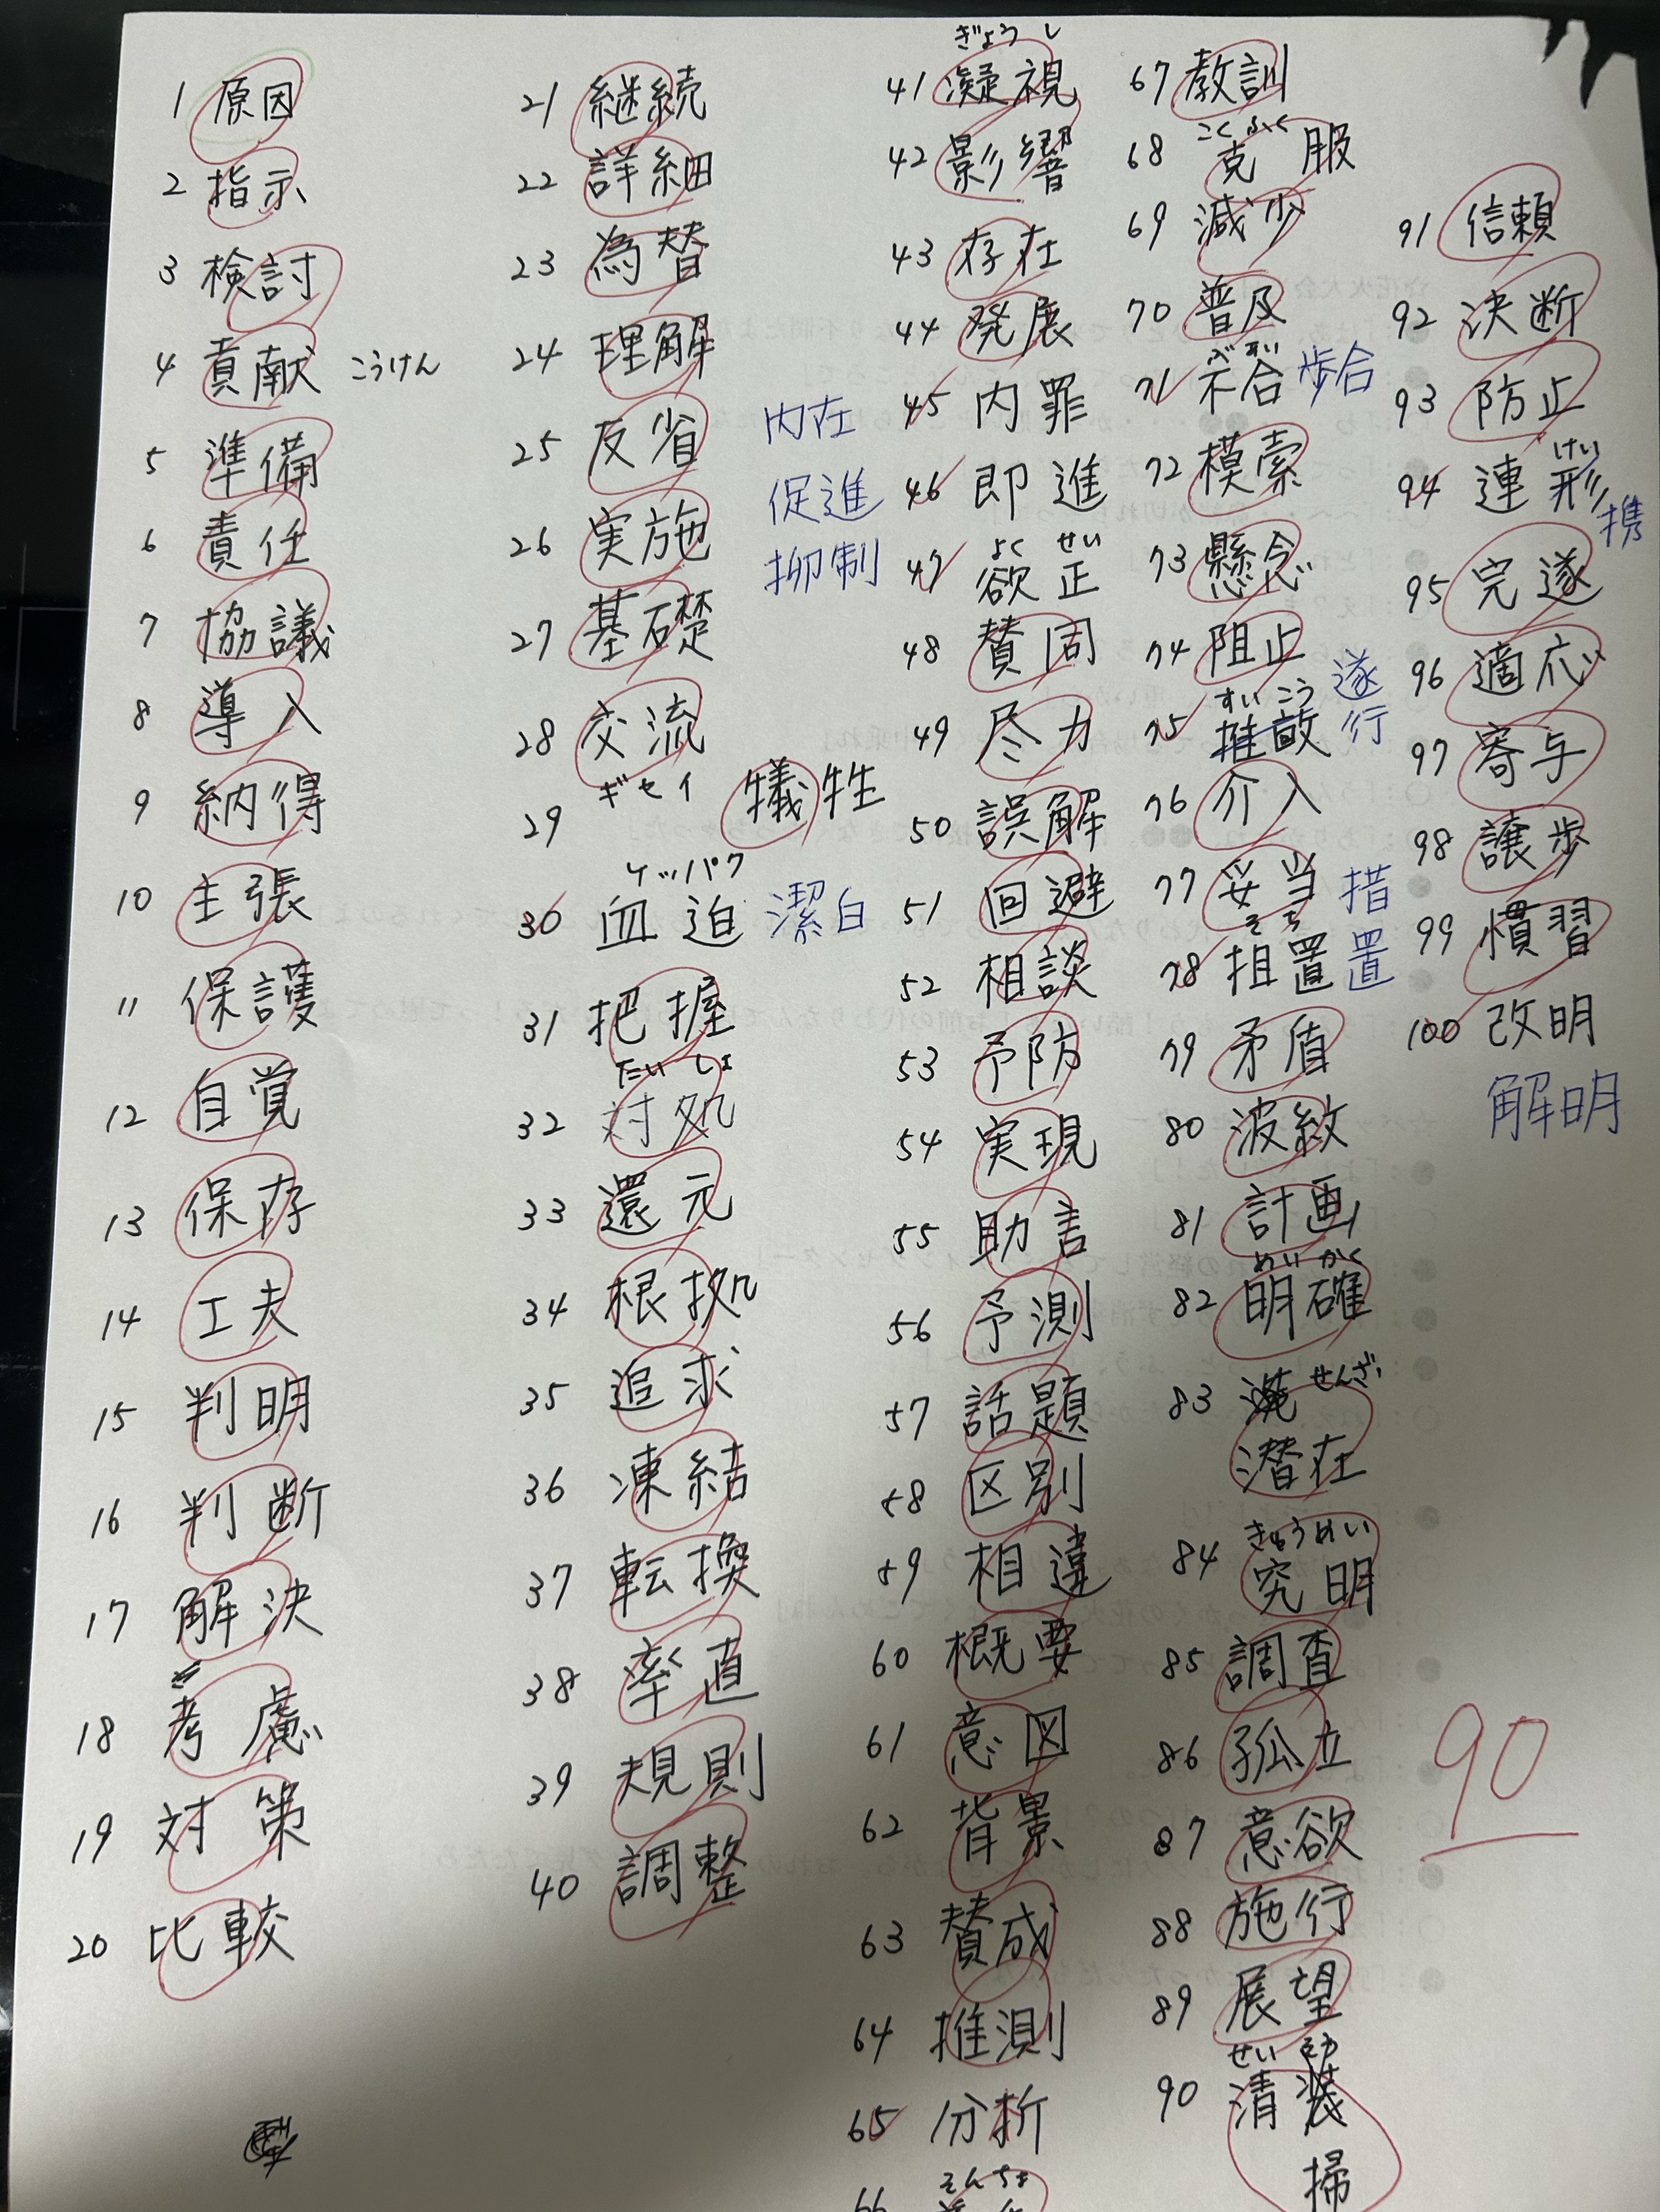 1 原因
2 指示
3 検討
4 貢献 こうけん
5 準備
6 責任
7 協議
8 導入
9 納得
10 主張
11 保護
12 自覚
13 保存
14 工夫
15 判明
16 判断
17 解決
18 考慮
19 対策
20 比較
21 継続
22 詳細
23 為替
24 理解
25 反省
26 実施
27 基礎
28 交流
ギセイ
29 犠牲
ケッパク
30 血迫 潔白
31 把握
たいしょ
32 対処
33 還元
34 根拠
35 追求
36 凍結
37 転換
38 率直
39 規則
40 調整
ぎょうし
41 凝視
42 影響
43 存在
44 発展
内在 45 内罪
促進 46 即進
よく せい
抑制 47 欲正
48 賛同
49 尽力
50 誤解
51 回避
52 相談
53 予防
54 実現
55 助言
56 予測
57 話題
58 区別
59 相違
60 概要
61 意図
62 背景
63 賛成
64 推測
65 分析
そんちょ
66
67 教訓
こくふく
68 克服
69 減少
70 普及
ぶあい
71 不合 歩合
72 模索
73 懸念
74 阻止
すいこう
75 推敲 遂行
76 介入
77 妥当
そち
78 担置 措置
79 矛盾
80 波紋
81 計画
めいかく
82 明確
83 せんざい
潜在
きゅうめい
84 究明
85 調査
86 孤立
87 意欲
88 施行
89 展望
せい そう
90 清装
掃
91 信頼
92 決断
93 防止
けい
94 連形 携
95 完遂
96 適応
97 寄与
98 譲歩
99 慣習
100 改明
解明
90